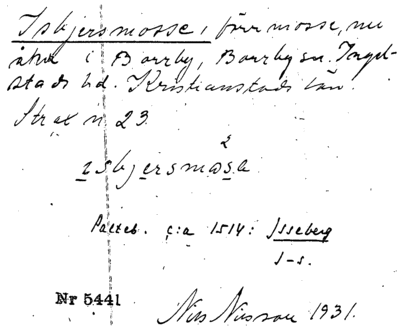 Isbjersmosse, förr mosse, nu
åker i Borrby, Borrby sn. Ingel-
stads hd. Kristianstads län.
Strax n. 23.
2
ısbjersmosa
Palteb. c:a 1514: Isseberg
J-s.
Nr 5441
Nils Nilsson 1931.